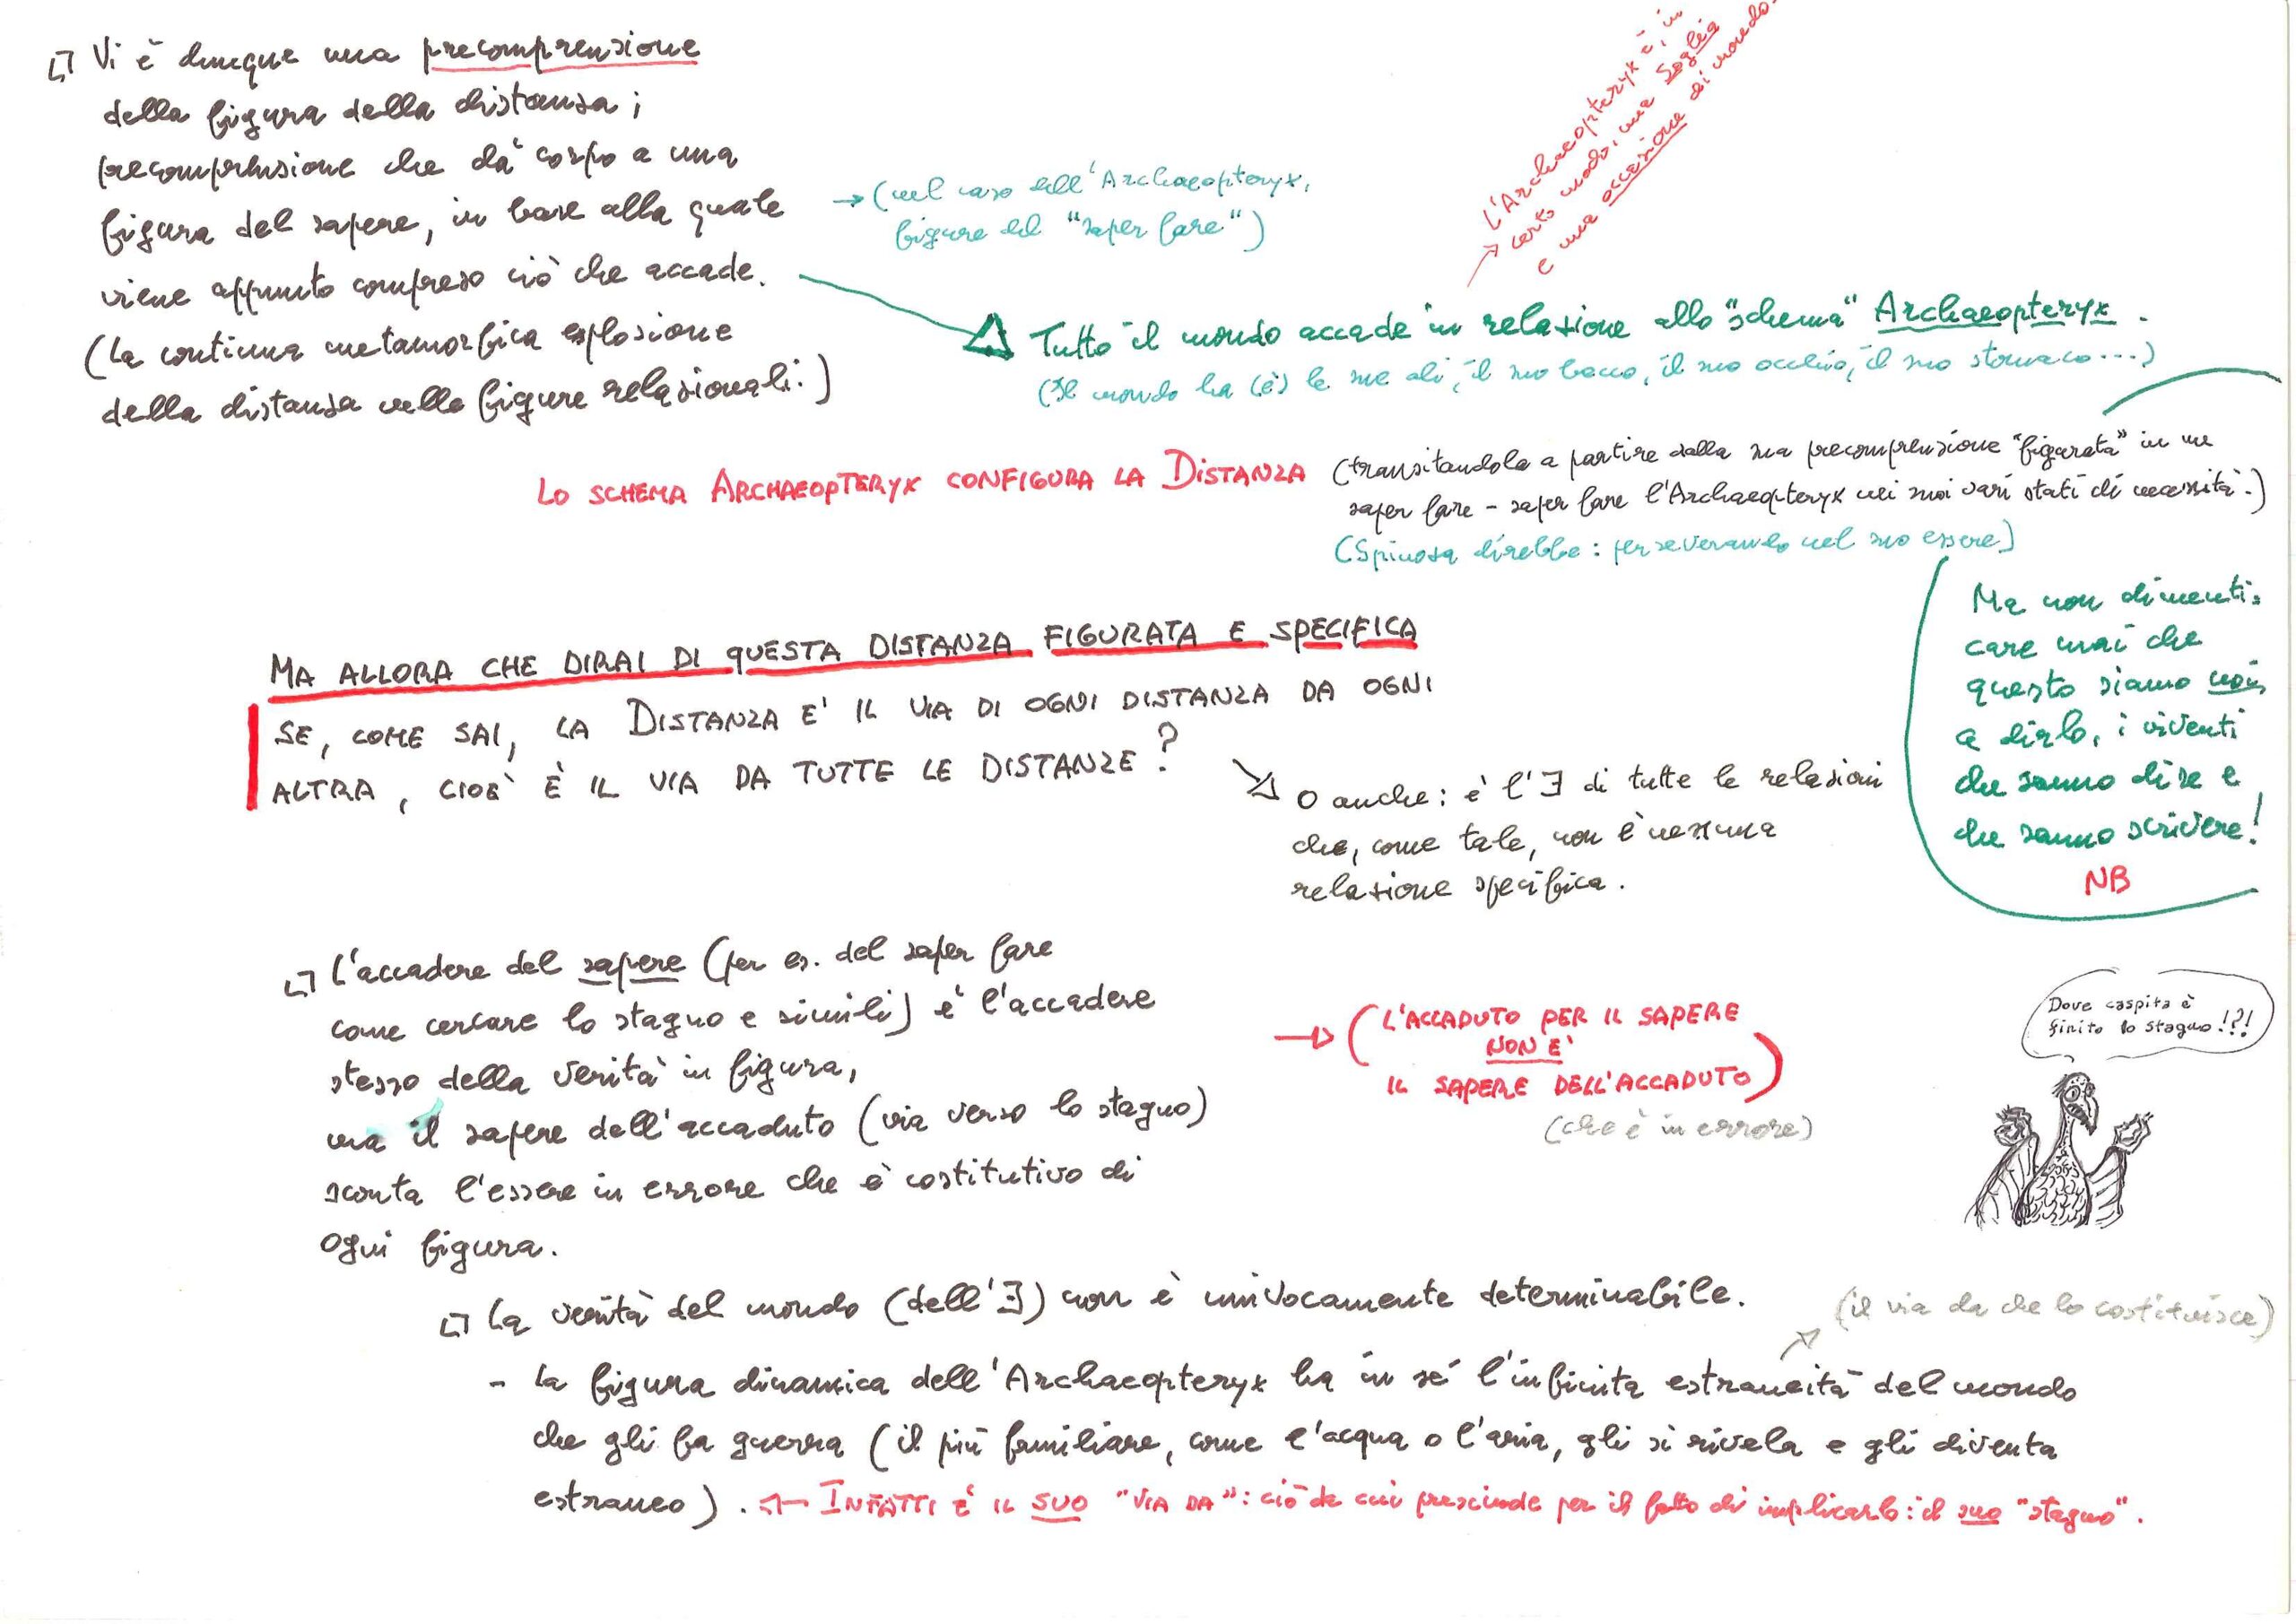 Vi è dunque una precomprensione
della figura della distanza;
precomprensione che dà corpo a una
figura del sapere, in base alla quale
viene appunto compreso ciò che accade.
(La continua metamorfica esplosione
della distanza nelle figure relazionali.)
→ (nel caso dell'Archaeopteryx,
figure del "saper fare")
L'Archaeopteryx è, in
certo modo, una soglia
e una occasione di mondo.
Tutto il mondo accade in relazione allo "schema" Archaeopteryx.
(Il mondo ha (è) le sue ali, il suo becco, il suo occhio, il suo stomaco...)
LO SCHEMA ARCHAEOPTERYX CONFIGURA LA DISTANZA
(transitandola a partire dalla sua precomprensione "figurata" in un
saper fare - saper fare l'Archaeopteryx nei suoi vari stati di necessità.)
(Spinoza direbbe: perseverando nel suo essere)
Ma non dimenti=
care mai che
questo siamo noi
a dirlo, i viventi
che sanno dire e
che sanno scrivere!
NB
MA ALLORA CHE DIRAI DI QUESTA DISTANZA FIGURATA E SPECIFICA
SE, COME SAI, LA DISTANZA E' IL VIA DI OGNI DISTANZA DA OGNI
ALTRA, CIOÈ È IL VIA DA TUTTE LE DISTANZE?
O anche: è l'∃ di tutte le relazioni
che, come tale, non è nessuna
relazione specifica.
L'accadere del sapere (per es. del saper fare
come cercare lo stagno e simili) è l'accadere
stesso della verità in figura,
ma il sapere dell'accaduto (via verso lo stagno)
sconta l'essere in errore che è costitutivo di
ogni figura.
→ (L'ACCADUTO PER IL SAPERE
NON E'
IL SAPERE DELL'ACCADUTO)
(che è in errore)
Dove caspita è
finito lo stagno!?!
La verità del mondo (dell'∃) non è univocamente determinabile.
(il via da che lo costituisce)
- La figura dinamica dell'Archaeopteryx ha in sé l'infinita estraneità del mondo
che gli fa guerra (il più familiare, come l'acqua o l'aria, gli si rivela e gli diventa
estraneo). ← INFATTI È IL SUO "VIA DA": ciò da cui prescinde per il fatto di implicarlo: il suo "stagno".